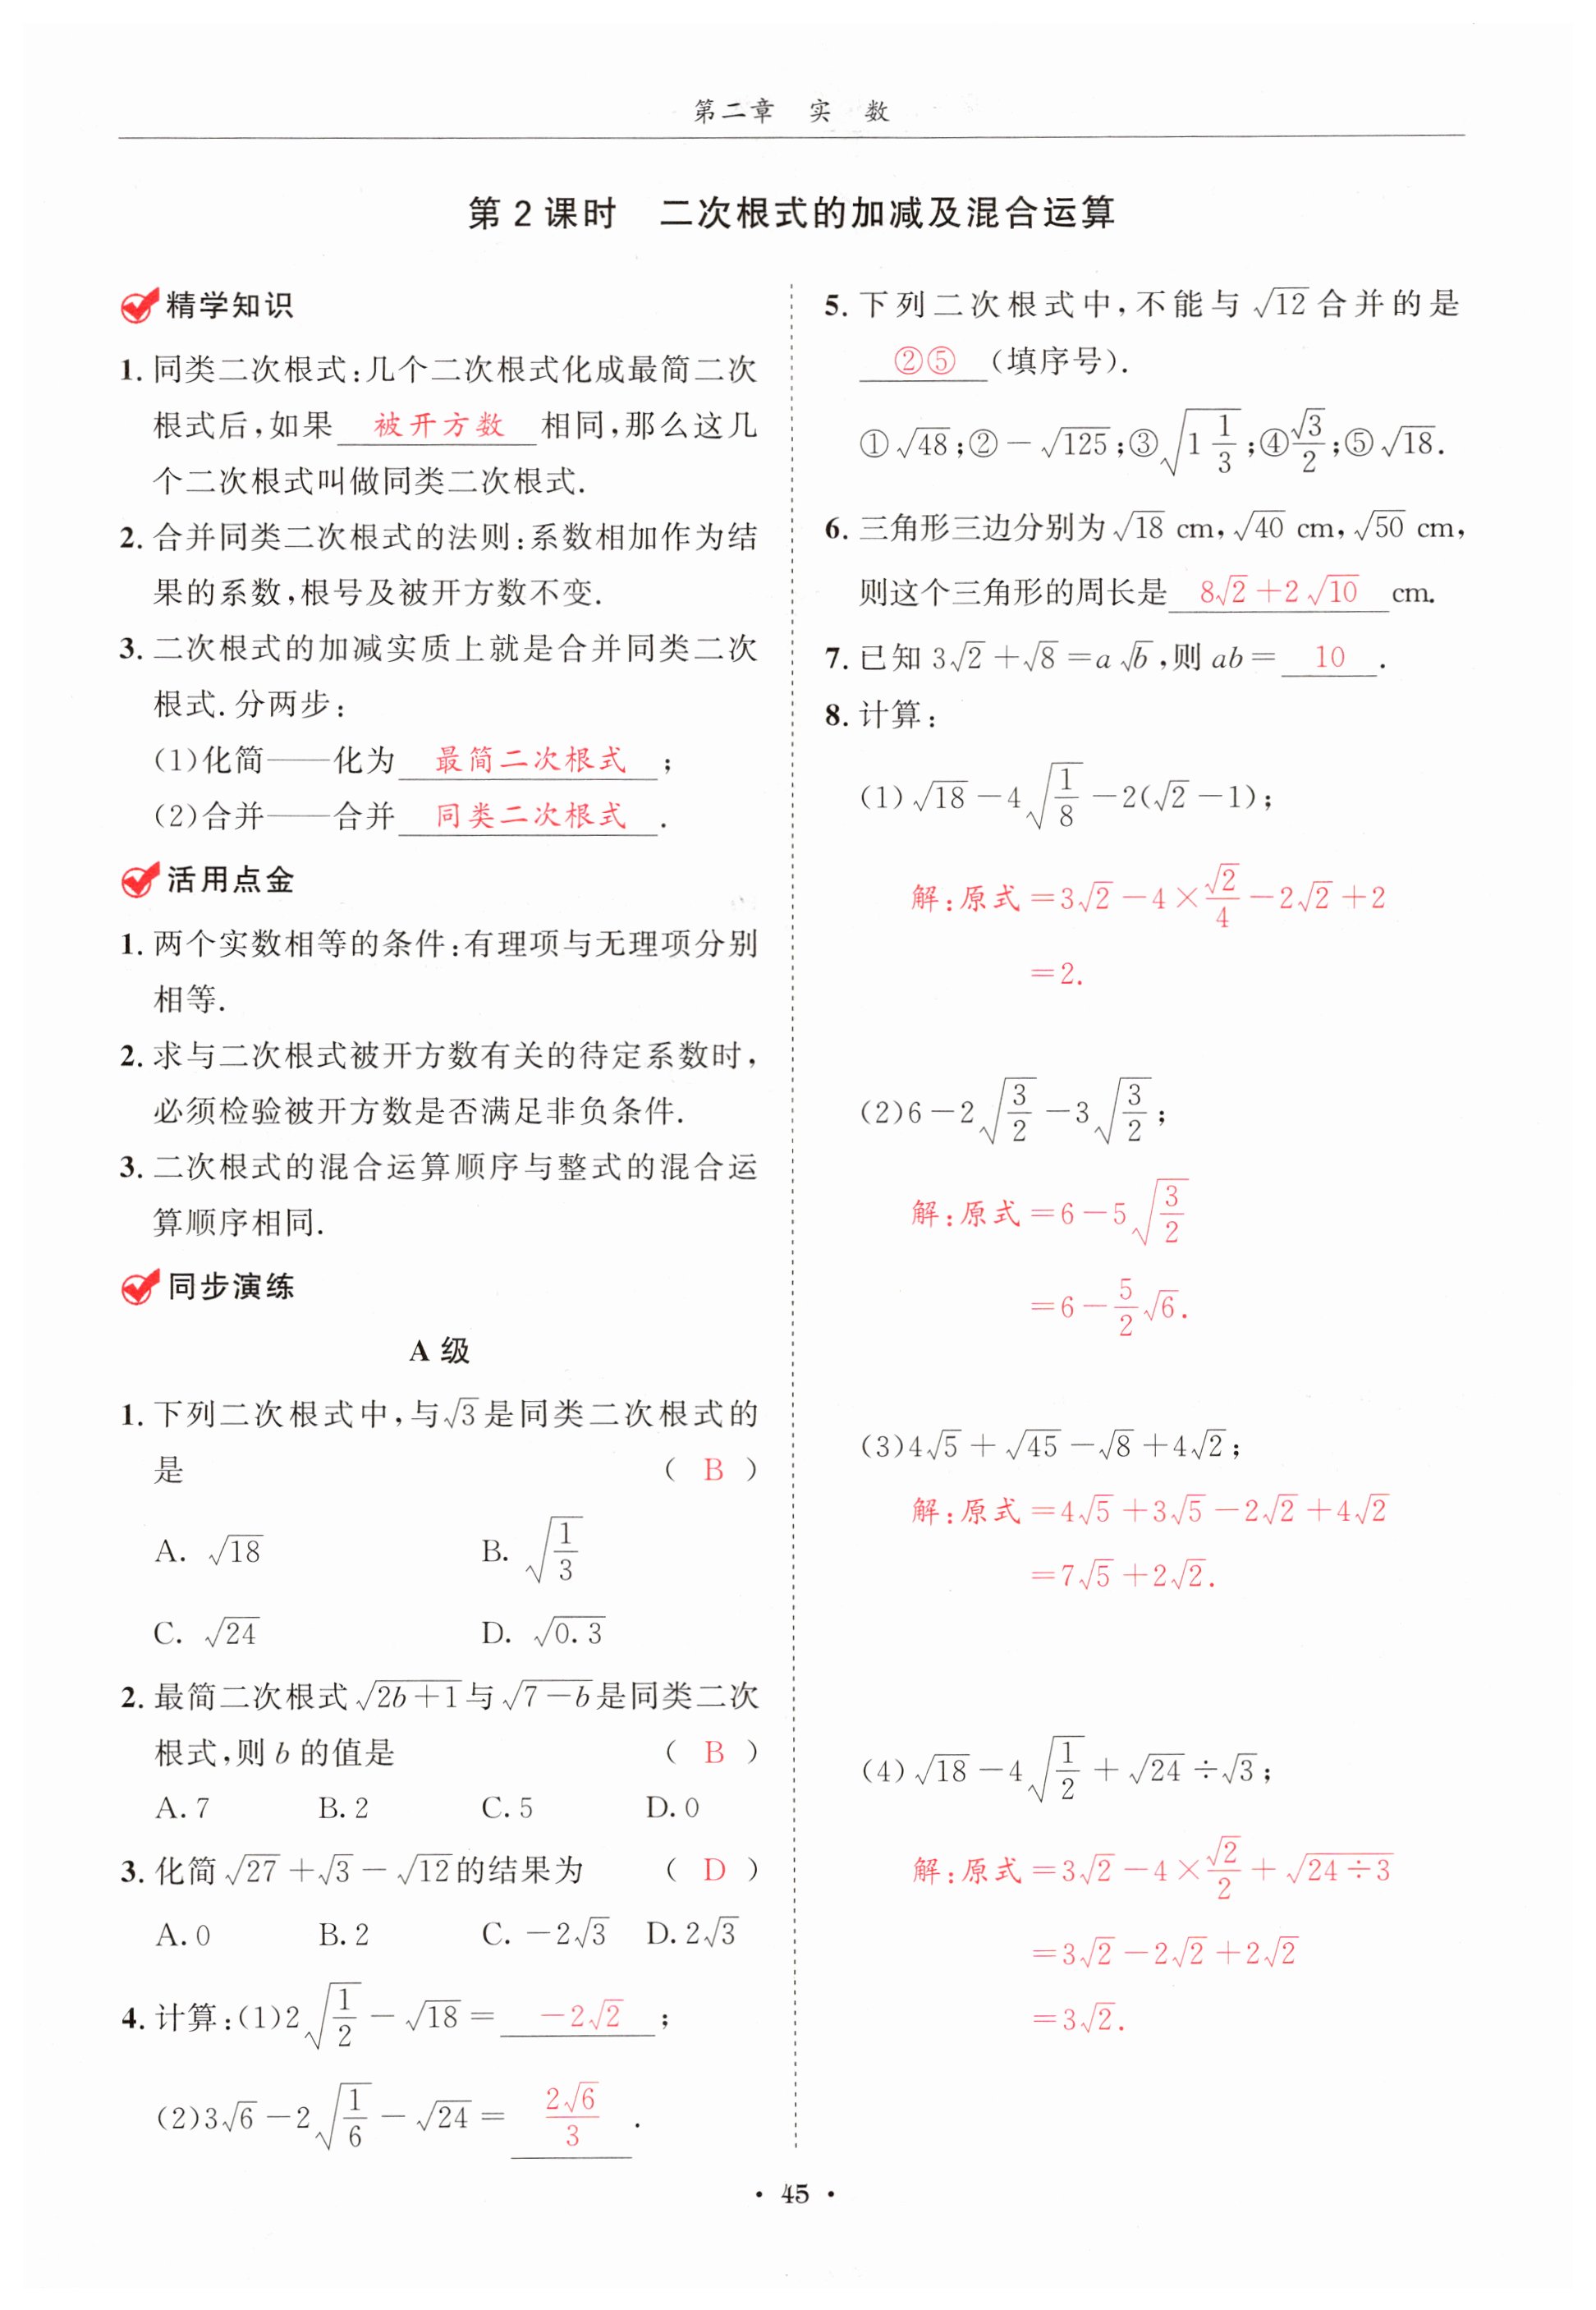 第二章 实 数
第 2 课时 二次根式的加减及混合运算
精学知识
1. 同类二次根式:几个二次根式化成最简二次
根式后,如果 被开方数 相同,那么这几
个二次根式叫做同类二次根式.
2. 合并同类二次根式的法则:系数相加作为结
果的系数,根号及被开方数不变.
3. 二次根式的加减实质上就是合并同类二次
根式. 分两步:
(1)化简——化为 最简二次根式 ;
(2)合并——合并 同类二次根式 .
活用点金
1. 两个实数相等的条件:有理项与无理项分别
相等.
2. 求与二次根式被开方数有关的待定系数时,
必须检验被开方数是否满足非负条件.
3. 二次根式的混合运算顺序与整式的混合运
算顺序相同.
同步演练
A 级
1. 下列二次根式中,与√3是同类二次根式的
是 ( B )
A. √18 B. √(1/3)
C. √24 D. √0.3
2. 最简二次根式√(2b+1)与√(7-b)是同类二次
根式,则 b 的值是 ( B )
A. 7 B. 2 C. 5 D. 0
3. 化简√27+√3-√12的结果为 ( D )
A. 0 B. 2 C. -2√3 D. 2√3
4. 计算:(1)2√(1/2)-√18= -2√2 ;
(2)3√6-2√(1/6)-√24= 2√6/3 .
5. 下列二次根式中,不能与√12合并的是
②⑤ (填序号).
①√48;②-√125;③√(1 1/3);④√3/2;⑤√18.
6. 三角形三边分别为√18 cm,√40 cm,√50 cm,
则这个三角形的周长是 8√2+2√10 cm.
7. 已知 3√2+√8=a√b,则 ab= 10 .
8. 计算:
(1)√18-4√(1/8)-2(√2-1);
解:原式=3√2-4×√2/4-2√2+2
=2.
(2)6-2√(3/2)-3√(3/2);
解:原式=6-5√(3/2)
=6-5/2√6.
(3)4√5+√45-√8+4√2;
解:原式=4√5+3√5-2√2+4√2
=7√5+2√2.
(4)√18-4√(1/2)+√24÷√3;
解:原式=3√2-4×√2/2+√(24÷3)
=3√2-2√2+2√2
=3√2.
· 45 ·